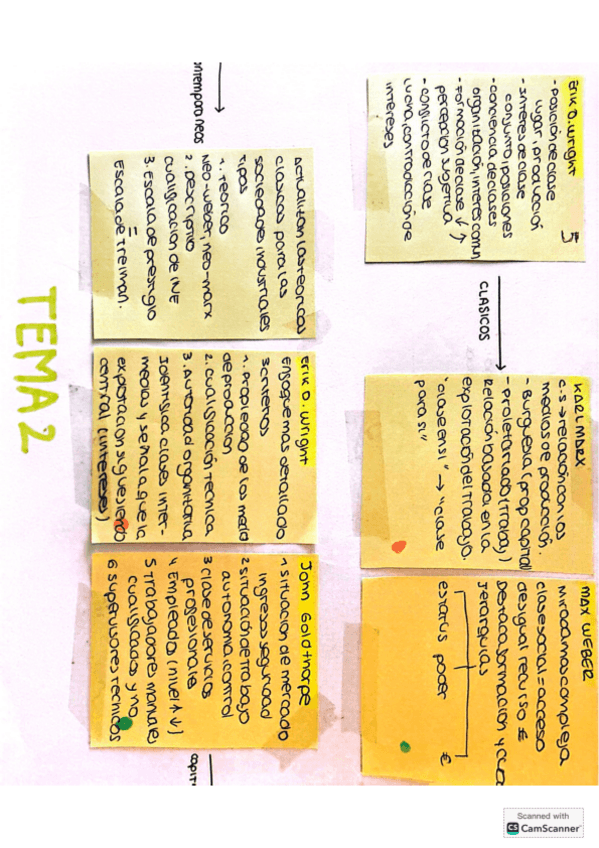 TEMA 2
Erik O. Wright
5
- Posición de clase
lugar, producción
- Interes de clase
conjunto, posiciones
- conciencia de clases
organización, interes comun
- Formación de clase
percepcion subjetiva
- conflicto de clase
lucha, contradicción de
intereses
CLASICOS
KARL MARX
C.S → relación con los
medias de producción.
- Burguesia (prop capital)
- Proletariado (trabaj)
Relación basada en la
explotación del trabajo.
"clase en si" → "clase
para si"
MAX WEBER
Mirada mas compleja
clase social = acceso
desigual recurso €
Destaca formación y
Jerarquias
estatus poder €
ontemporaneos
Actualizan las teorias
clasicas para las
sociedades industriales
Tipos
1. Teorico
Neo-weber, neo-marx
2. Descriptivo
cualificacion de INE
3. Escala de prestigio
=
Escala de Treiman.
Erik O. Wright
Enfoque mas detallado
3 criterios
1. Propiedad de los med
de producción
2. cualificación tecnica
3. Autoridad organitativa
Identifica clases inter-
medias y señala que la
explotacion sigue siendo
central (intereses)
John Goldthorpe
1 situacion de mercado
ingresos seguridad
2 situación de trabajo
autonomia, control
3 clase de servicios
profesionales
4 Empleados (nivel ↑↓)
5 Trabajadores manuales
cualificados y no
6 supervisores tecnicos
capit
Scanned with
CS CamScanner